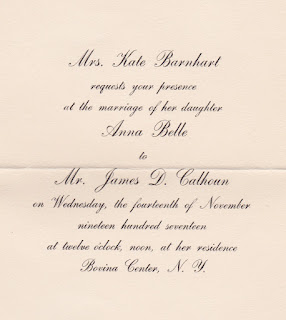 Mrs. Kate Barnhart
requests your presence
at the marriage of her daughter
Anna Belle
to
Mr. James D. Calhoun
on Wednesday, the fourteenth of November
nineteen hundred seventeen
at twelve o'clock, noon, at her residence
Bovina Center, N. Y.